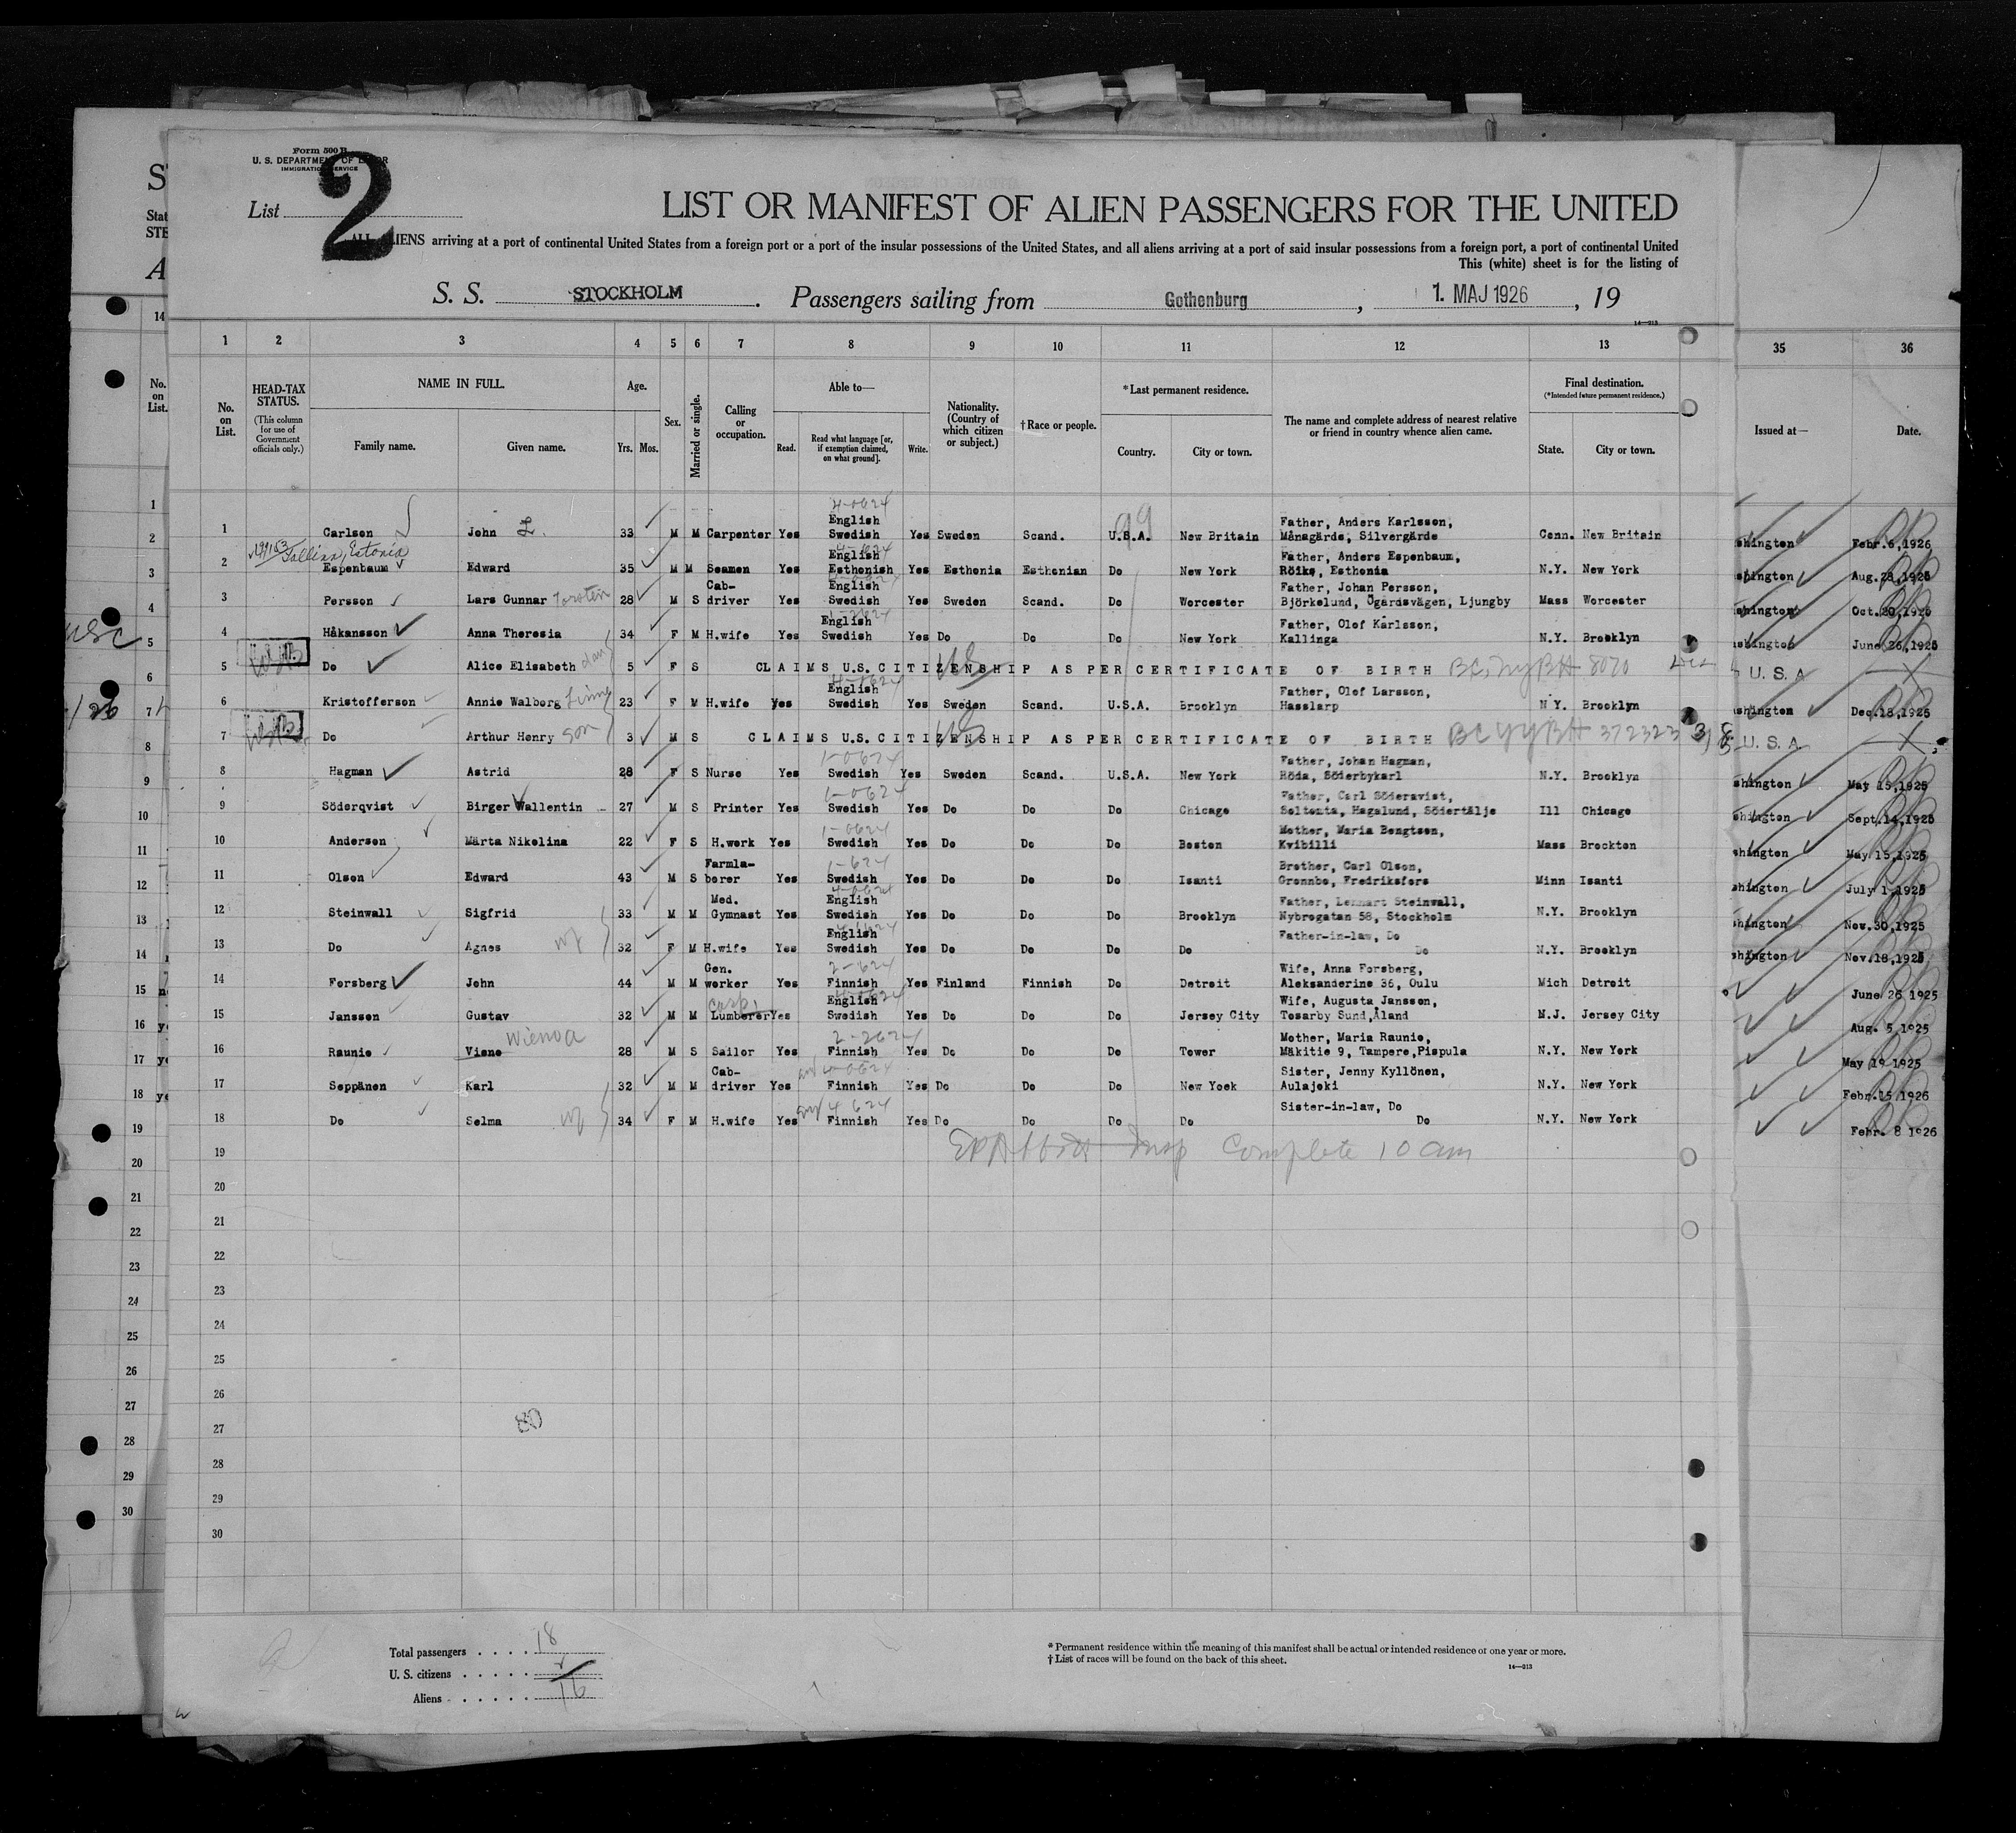 Form 500 B
U. S. DEPARTMENT OF LABOR
IMMIGRATION SERVICE
List 2
LIST OR MANIFEST OF ALIEN PASSENGERS FOR THE UNITED
ALL ALIENS arriving at a port of continental United States from a foreign port or a port of the insular possessions of the United States, and all aliens arriving at a port of said insular possessions from a foreign port, a port of continental United
This (white) sheet is for the listing of
S. S. STOCKHOLM. Passengers sailing from Gothenburg, 1. MAJ 1926, 19
14—213
1 2 3 4 5 6 7 8 9 10 11 12 13 35 36
No. on List.
HEAD-TAX STATUS.
(This column for use of Government officials only.)
NAME IN FULL.
Family name. Given name.
Age.
Yrs. Mos.
Sex.
Married or single.
Calling or occupation.
Able to—
Read. Read what language [or, if exemption claimed, on what ground]. Write.
Nationality. (Country of which citizen or subject.)
†Race or people.
*Last permanent residence.
Country. City or town.
The name and complete address of nearest relative or friend in country whence alien came.
Final destination.
(*Intended future permanent residence.)
State. City or town.
Issued at— Date.
1 Carlson John L. 33 M M Carpenter Yes English Swedish Yes Sweden Scand. U.S.A. New Britain Father, Anders Karlsson, Månagärde, Silvergärde Conn. New Britain Febr.6,1926
Tallinn, Estonia
2 Espenbaum Edward 35 M M Seamen Yes English Esthonish Yes Esthonia Esthonian Do New York Father, Anders Espenbaum, Röiks, Esthonia N.Y. New York Aug.28,1925
3 Persson Lars Gunnar Torsten 28 M S Cab-driver Yes English Swedish Yes Sweden Scand. Do Worcester Father, Johan Persson, Björkelund, Ögårdsvägen, Ljungby Mass Worcester Oct.20,1925
4 Håkansson Anna Theresia 34 F M H.wife Yes English Swedish Yes Do Do Do New York Father, Olof Karlsson, Kallinga N.Y. Brooklyn June 26,1925
5 Do Alice Elisabeth dau 5 F S CLAIMS U.S. CITIZENSHIP AS PER CERTIFICATE OF BIRTH 8070 U. S. A
6 Kristofferson Annie Walborg 23 F M H.wife Yes English Swedish Yes Sweden Scand. U.S.A. Brooklyn Father, Olof Larsson, Hasslarp N Y. Brooklyn Dec.18,1925
7 Do Arthur Henry son 3 M S CLAIMS U.S. CITIZENSHIP AS PER CERTIFICATE OF BIRTH 372323 U. S. A
8 Hagman Astrid 28 F S Nurse Yes Swedish Yes Sweden Scand. U.S.A. New York Father, Johan Hagman, Röda, Söderbykarl N.Y. Brooklyn May 15,1925
9 Söderqvist Birger Wallentin 27 M S Printer Yes Swedish Yes Do Do Do Chicago Father, Carl Söderqvist, Soltomta, Hagalund, Södertälje Ill Chicago Sept.14,1925
10 Anderson Märta Nikolina 22 F S H.work Yes Swedish Yes Do Do Do Boston Mother, Maria Bengtson, Kvibilli Mass Brockton May 15,1925
11 Olson Edward 43 M S Farmlaborer Yes Swedish Yes Do Do Do Isanti Brother, Carl Olson, Grennbo, Fredriksfors Minn Isanti July 1,1925
12 Steinwall Sigfrid 33 M M Med. Gymnast Yes English Swedish Yes Do Do Do Brooklyn Father, Lennart Steinwall, Nybrogatan 58, Stockholm N.Y. Brooklyn Nov.30,1925
13 Do Agnes wf 32 F M H.wife Yes English Swedish Yes Do Do Do Do Father-in-law, Do Do N.Y. Brooklyn Nov.18,1925
14 Forsberg John 44 M M Gen. worker Yes Finnish Yes Finland Finnish Do Detroit Wife, Anna Forsberg, Aleksanderino 36, Oulu Mich Detroit June 26 1925
15 Jansson Gustav 32 M M Lumberer Yes English Swedish Yes Do Do Do Jersey City Wife, Augusta Jansson, Tosarby Sund,Åland N.J. Jersey City Aug. 5,1925
16 Raunio Visno 28 M S Sailor Yes Finnish Yes Do Do Do Tower Mother, Maria Raunio, Mäkitie 9, Tampere,Pispula N.Y. New York May 19 1925
17 Seppänen Karl 32 M M Cab-driver Yes Finnish Yes Do Do Do New Yoek Sister, Jenny Kyllönen, Aulajoki N.Y. New York Febr.15,1926
18 Do Selma wf 34 F M H.wife Yes Finnish Yes Do Do Do Do Sister-in-law, Do Do N.Y. New York Febr. 8 1926
19 Insp Complete 10 am
20
21
22
23
24
25
26
27 80
28
29
30
Total passengers . . . . 18
U. S. citizens . . . . . 2
Aliens . . . . . 16
* Permanent residence within the meaning of this manifest shall be actual or intended residence of one year or more.
† List of races will be found on the back of this sheet.
14—213